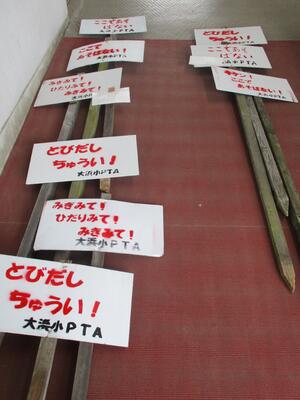 ここであそ
ばない
大浜小PTA
ここで
あそばない!
大浜小PTA
みぎみて!
ひだりみて!
みぎみて!
とびだし
ちゅうい!
大浜小PTA
みぎみて!
ひだりみて!
みぎみて!
大浜小PTA
とびだし
ちゅうい!
大浜小PTA
とびだし
ちゅうい!
大浜小PTA
ここであそ
ばない
浜小PTA
キケン!
ここで
あそばない!
大浜小PTA